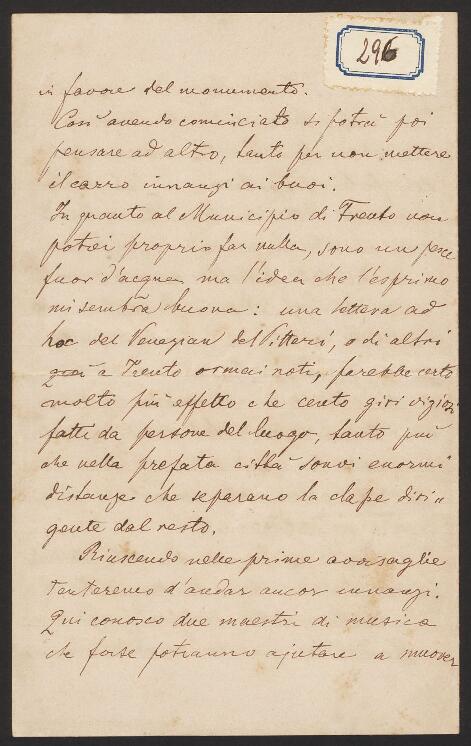 296
in favore del monumento.
Così avendo cominciato si potrà poi
pensare ad altro, tanto per non mettere
il carro innanzi ai buoi.
In quanto al Municipio di Trento non
potrei proprio far nulla, sono un pesce
fuor d'acqua ma l'idea che l'esprimo
mi sembra buona: una lettera ad
hoc del Venezian del Vittori, o di altri
a Trento ormai noti, farebbe certo
molto più effetto che cento giri viziosi
fatti da persone del luogo, tanto più
che nella prefata città sonvi enormi
distanze che separano la clape diri=
gente dal resto.
Riuscendo nelle prime avvisaglie
tenteremo d'andar ancor innanzi.
Qui conosco due maestri di musica
che forse potranno ajutare a muover